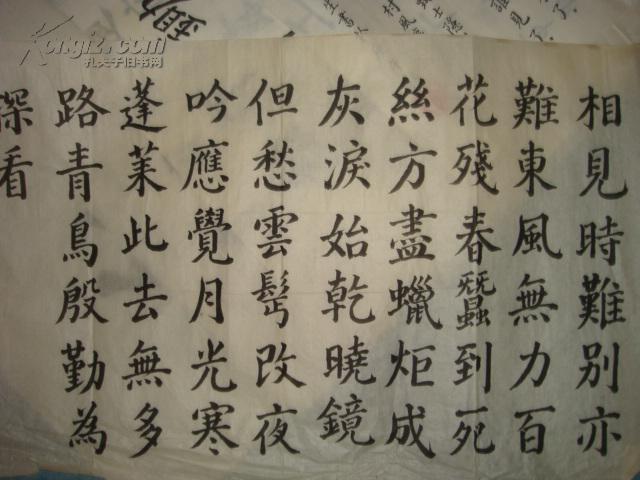 相見時難別亦
難東風無力百
花殘春蠶到死
絲方盡蠟炬成
灰淚始乾曉鏡
但愁雲鬢改夜
吟應覺月光寒
蓬莱此去無多
路青鳥殷勤為
探看
Kongfz.com
孔夫子旧书网